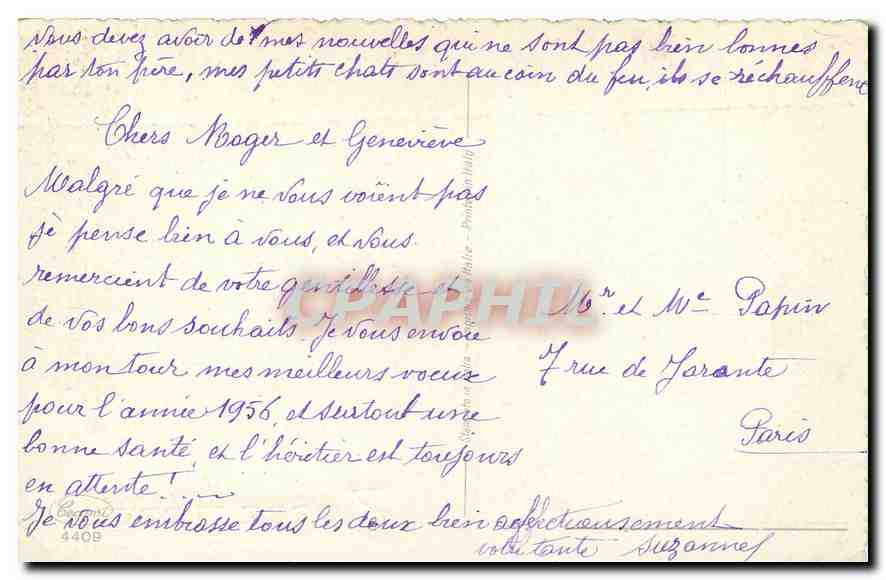 Vous devez avoir de mes nouvelles qui ne sont pas bien bonnes
par ton père, mes petits chats sont au coin du feu, ils se réchauffent
Chers Roger et Geneviève
Malgré que je ne vous voïent pas
je pense bien à vous, et vous
remercient de votre gentillesse et
de vos bons souhaits. Je vous envoie
à mon tour mes meilleurs voeux
pour l'année 1956, et surtout une
bonne santé, et l'héritier est toujours
en attente !
Je vous embrasse tous les deux bien affectionsement
votre tante Suzanne
Mr. et Me Papin
7 rue de Jarente
Paris
Printed in Italy
CPAPHIL
Cecami
4409